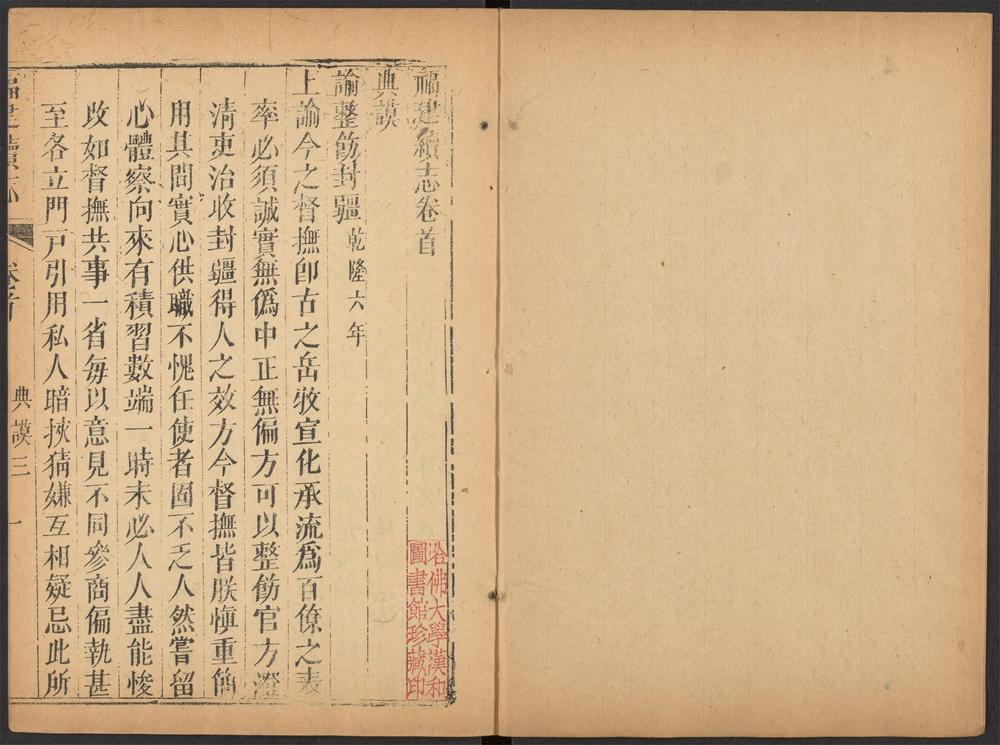 福建續志卷首
典謨
諭整飭封疆乾隆六年
上諭今之督撫即古之岳牧宣化承流爲百僚之表
率必須誠實無僞中正無偏方可以整飭官方澄
清吏治收封疆得人之效方今督撫皆朕愼重簡
用其間實心供職不愧任使者固不乏人然嘗留
心體察向來有積習數端一時未必人人盡能悛
改如督撫共事一省毎以意見不同參商偏執甚
至各立門戸引用私人暗挾猜嫌互相疑忌此所
福建續志
卷首
典謨三
一
哈佛大學漢和
圖書館珍藏印